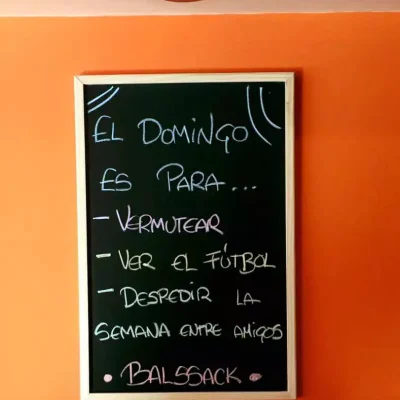 EL DOMINGO
ES PARA...
- VERMUTEAR
- VER EL FÚTBOL
- DESPEDIR LA
SEMANA ENTRE AMIGOS
• BALSSACK •